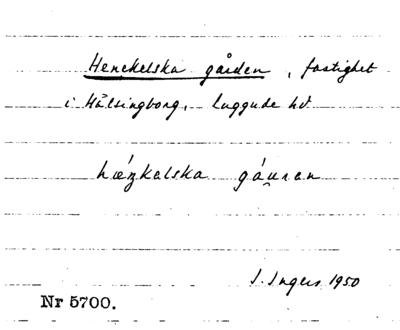 Henckelska gården, fastighet
i Hälsingborg, Luggude hd
hǽŋkalska gáu̯ran
I. Ingers 1950
Nr 5700.